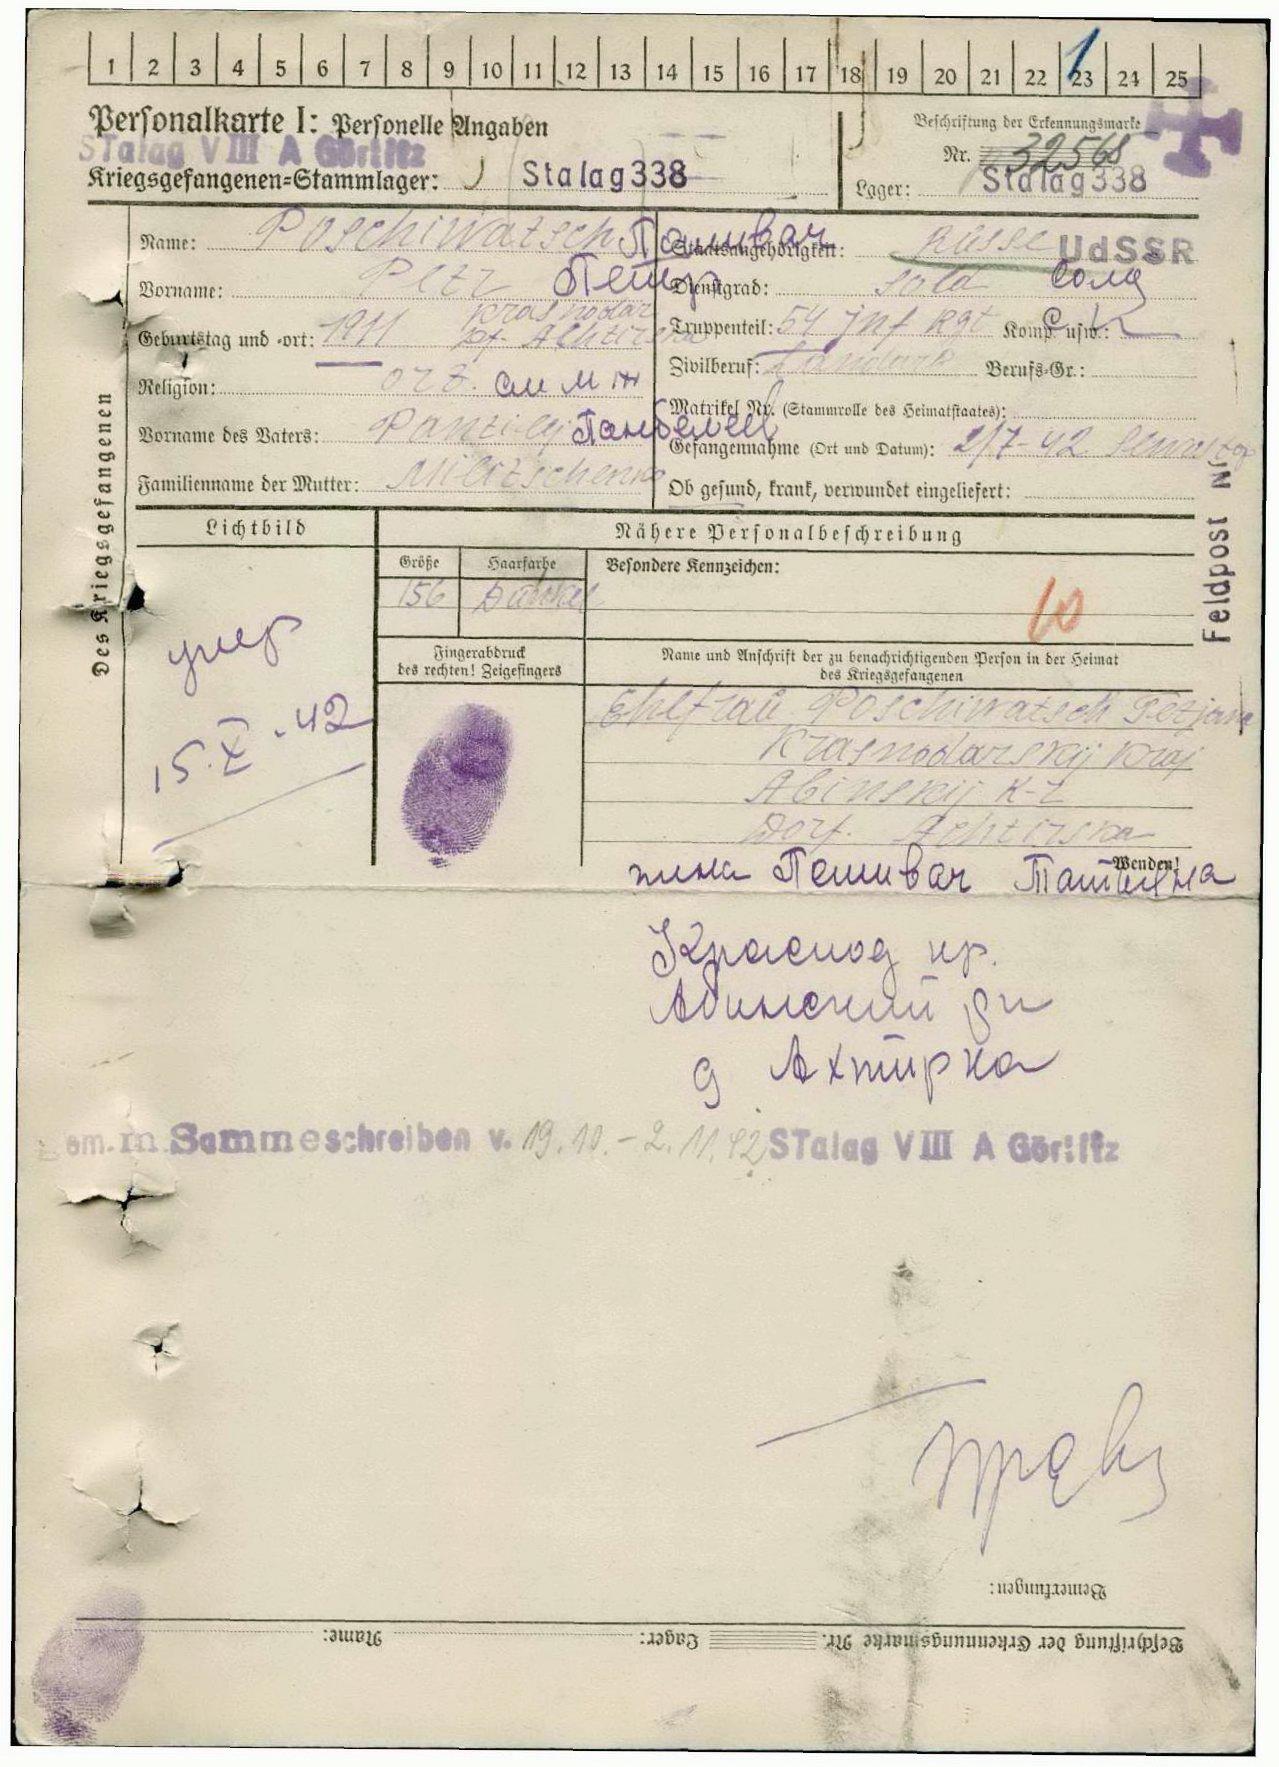 1 2 3 4 5 6 7 8 9 10 11 12 13 14 15 16 17 18 19 20 21 22 23 24 25
1
Personalkarte I: Personelle Angaben
STalag VIII A Görlitz
Kriegsgefangenen=Stammlager: Stalag 338
Beschriftung der Erkennungsmarke
Nr. 32568
Lager: Stalag 338
Des Kriegsgefangenen
Name: Poschiwatsch Пошивач
Vorname: Petr Петр
Geburtstag und =ort: 1911 Krasnodar Df. Achtirska
Religion: ort.
Vorname des Vaters: Pantilij
Familienname der Mutter: Militschenko
Staatsangehörigkeit: Russe UdSSR
Dienstgrad: Sold Солд
Truppenteil: 54 Inf Rgt Komp. usw.:
Zivilberuf: Berufs=Gr.:
Matrikel Nr. (Stammrolle des Heimatstaates):
Gefangennahme (Ort und Datum): 2/7-42
Ob gesund, krank, verwundet eingeliefert:
Feldpost Nr
Lichtbild
Nähere Personalbeschreibung
Größe Haarfarbe Besondere Kennzeichen:
156 Dunkel
10
умер
15.X.-42
Fingerabdruck
des rechten! Zeigefingers
Name und Anschrift der zu benachrichtigenden Person in der Heimat
des Kriegsgefangenen
Ehefrau Poschiwatsch Tetjana
Krasnodarskij Kraj
Abinskij R-z
Dorf. Achtirska
Wenden!
жена Пошивач Татьяна
Краснод кр.
Абинский рн
д Ахтирка
em. m Sammeschreiben v. 19.10.-2.11.42 STalag VIII A Görlitz
Bemerkungen:
Beschriftung der Erkennungsmarke Nr. Lager: Name: